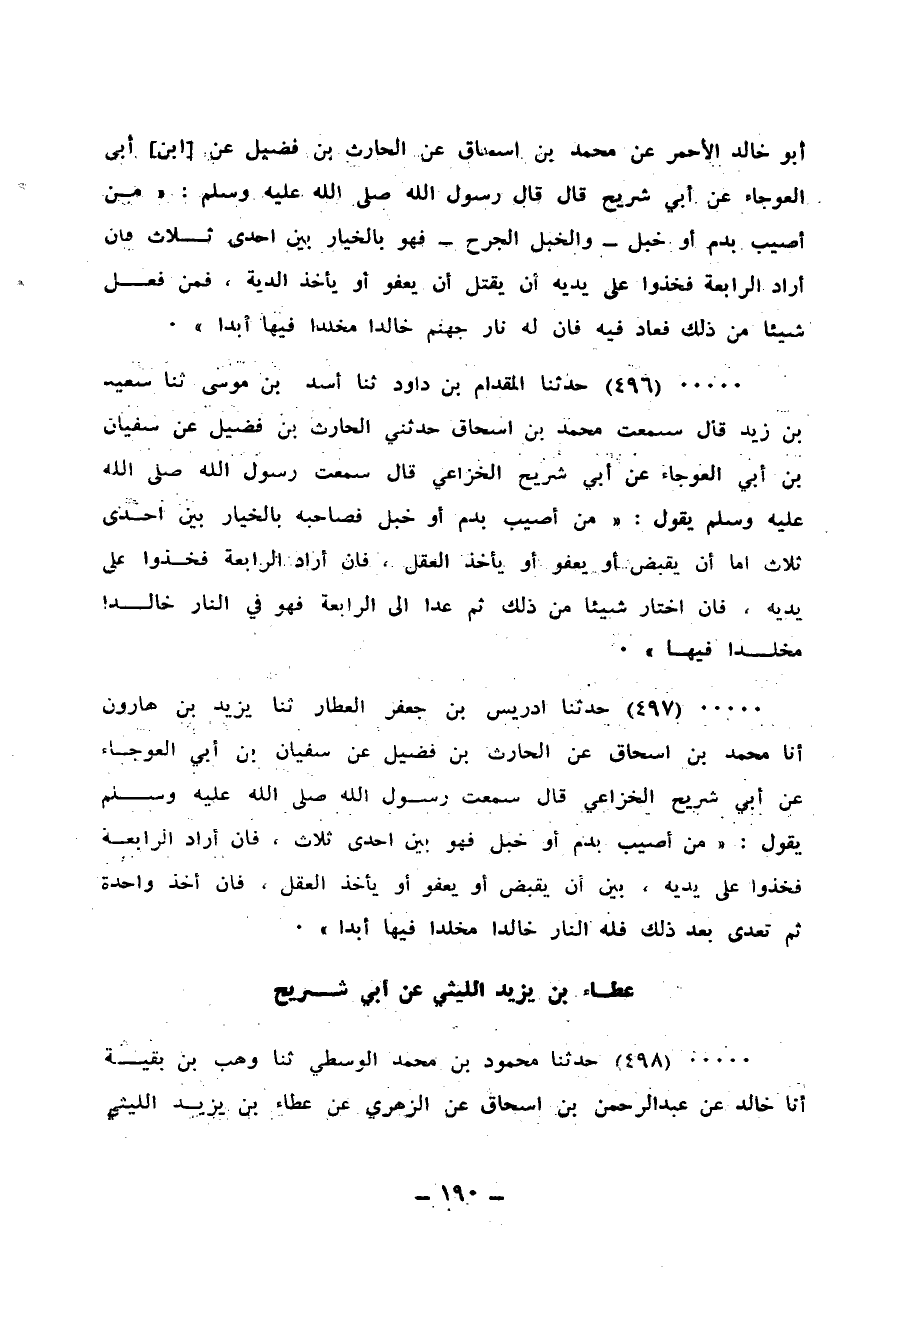 أبو خالد الأحمر عن محمد بن اسحاق عن الحارث بن فضيل عن [ابن] أبى
العوجاء عن أبي شريح قال قال رسول الله صلى الله عليه وسلم : « مـن
أصيب بدم أو خبل ــ والخبل الجرح ــ فهو بالخيار بين احدى ثــلاث فان
أراد الرابعة فخذوا على يديه أن يقتل أن يعفو أو يأخذ الدية ، فمن فعــل
شيئا من ذلك فعاد فيه فان له نار جهنم خالدا مخلدا فيها أبدا » ٠
٠٠٠٠٠ (٤٩٦) حدثنا المقدام بن داود ثنا أسد بن موسى ثنا سعيد
بن زيد قال سمعت محمد بن اسحاق حدثني الحارث بن فضيل عن سفيان
بن أبي العوجاء عن أبي شريح الخزاعي قال سمعت رسول الله صلى الله
عليه وسلم يقول : « من أصيب بدم أو خبل فصاحبه بالخيار بين احـدى
ثلاث اما أن يقبض أو يعفو أو يأخذ العقل ، فان أراد الرابعة فخـذوا على
يديه ، فان اختار شيئا من ذلك ثم عدا الى الرابعة فهو في النار خالــدا
مخلــدا فيهـا » ٠
٠٠٠٠٠ (٤٩٧) حدثنا ادريس بن جعفر العطار ثنا يزيد بن هارون
أنا محمد بن اسحاق عن الحارث بن فضيل عن سفيان بن أبي العوجـاء
عن أبي شريح الخزاعي قال سمعت رسـول الله صلى الله عليه وسـلم
يقول : « من أصيب بدم أو خبل فهو بين احدى ثلاث ، فان أراد الرابعـة
فخذوا على يديه ، بين أن يقبض أو يعفو أو يأخذ العقل ، فان أخذ واحدة
ثم تعدى بعد ذلك فله النار خالدا مخلدا فيها أبدا » ٠
عطـاء بن يزيد الليثي عن أبي شــريح
٠٠٠٠٠ (٤٩٨) حدثنا محمود بن محمد الوسطي ثنا وهب بن بقيـة
أنا خالد عن عبدالرحمن بن اسحاق عن الزهري عن عطاء بن يزيـد الليثي
ــ ١٩٠ ــ